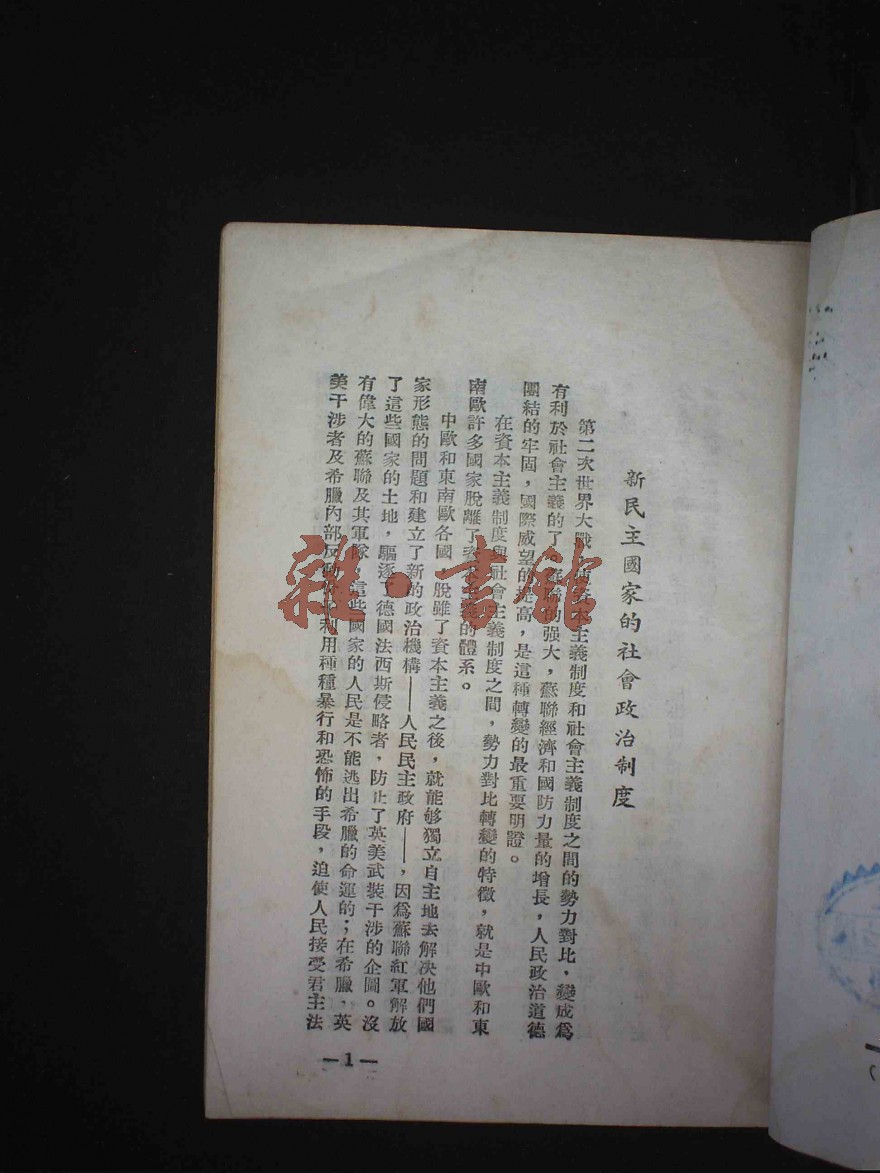 新民主國家的社會政治制度
第二次世界大戰，本主義制度和社會主義制度之間的勢力對比，變成爲
有利於社會主義的了。蘇聯的强大，蘇聯經濟和國防力量的增長，人民政治道德
團結的牢固，國際威望的提高，是這種轉變的最重要明證。
在資本主義制度與社會主義制度之間，勢力對比轉變的特徵，就是中歐和東
南歐許多國家脫離了資本主義的體系。
中歐和東南歐各國，脫雖了資本主義之後，就能够獨立自主地去解决他們國
家形態的問題和建立了新的政治機構——人民民主政府——，因爲蘇聯紅軍解放
了這些國家的土地，驅逐了德國法西斯侵略者，防止了英美武裝干涉的企圖。沒
有偉大的蘇聯及其軍隊，這些國家的人民是不能逃出希臘的命運的；在希臘，英
美干涉者及希臘內部反動利用種種暴行和恐怖的手段，迫使人民接受君主法
—1—
雜·書館